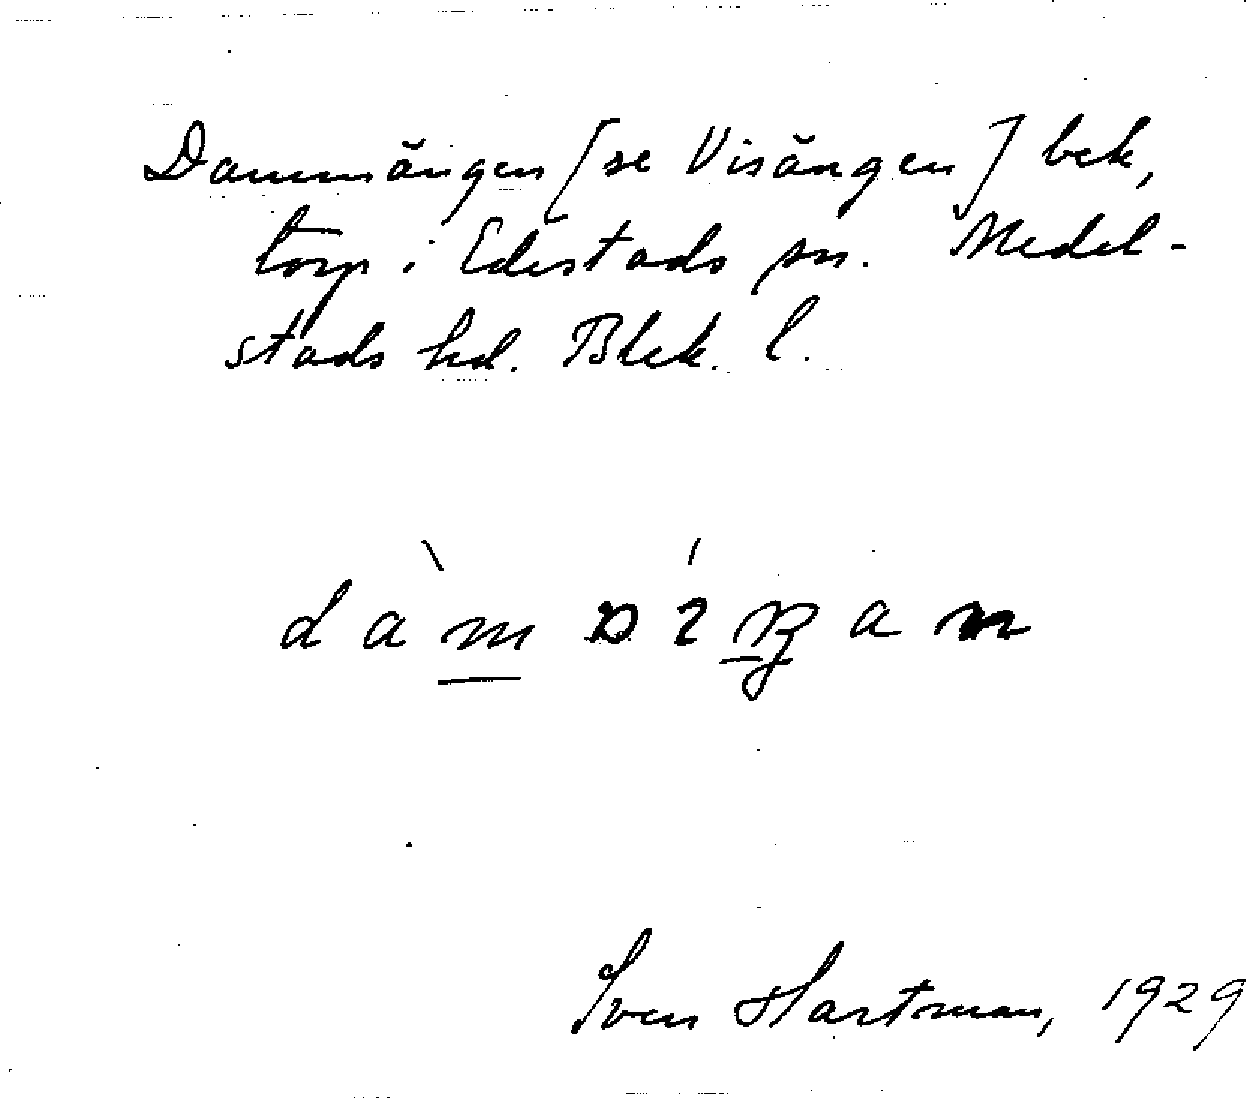 Dammängen [se Visängen] bek,
torp i Edestads sn. Medel-
stads hd. Blek. l.
Sven Hartman, 1929